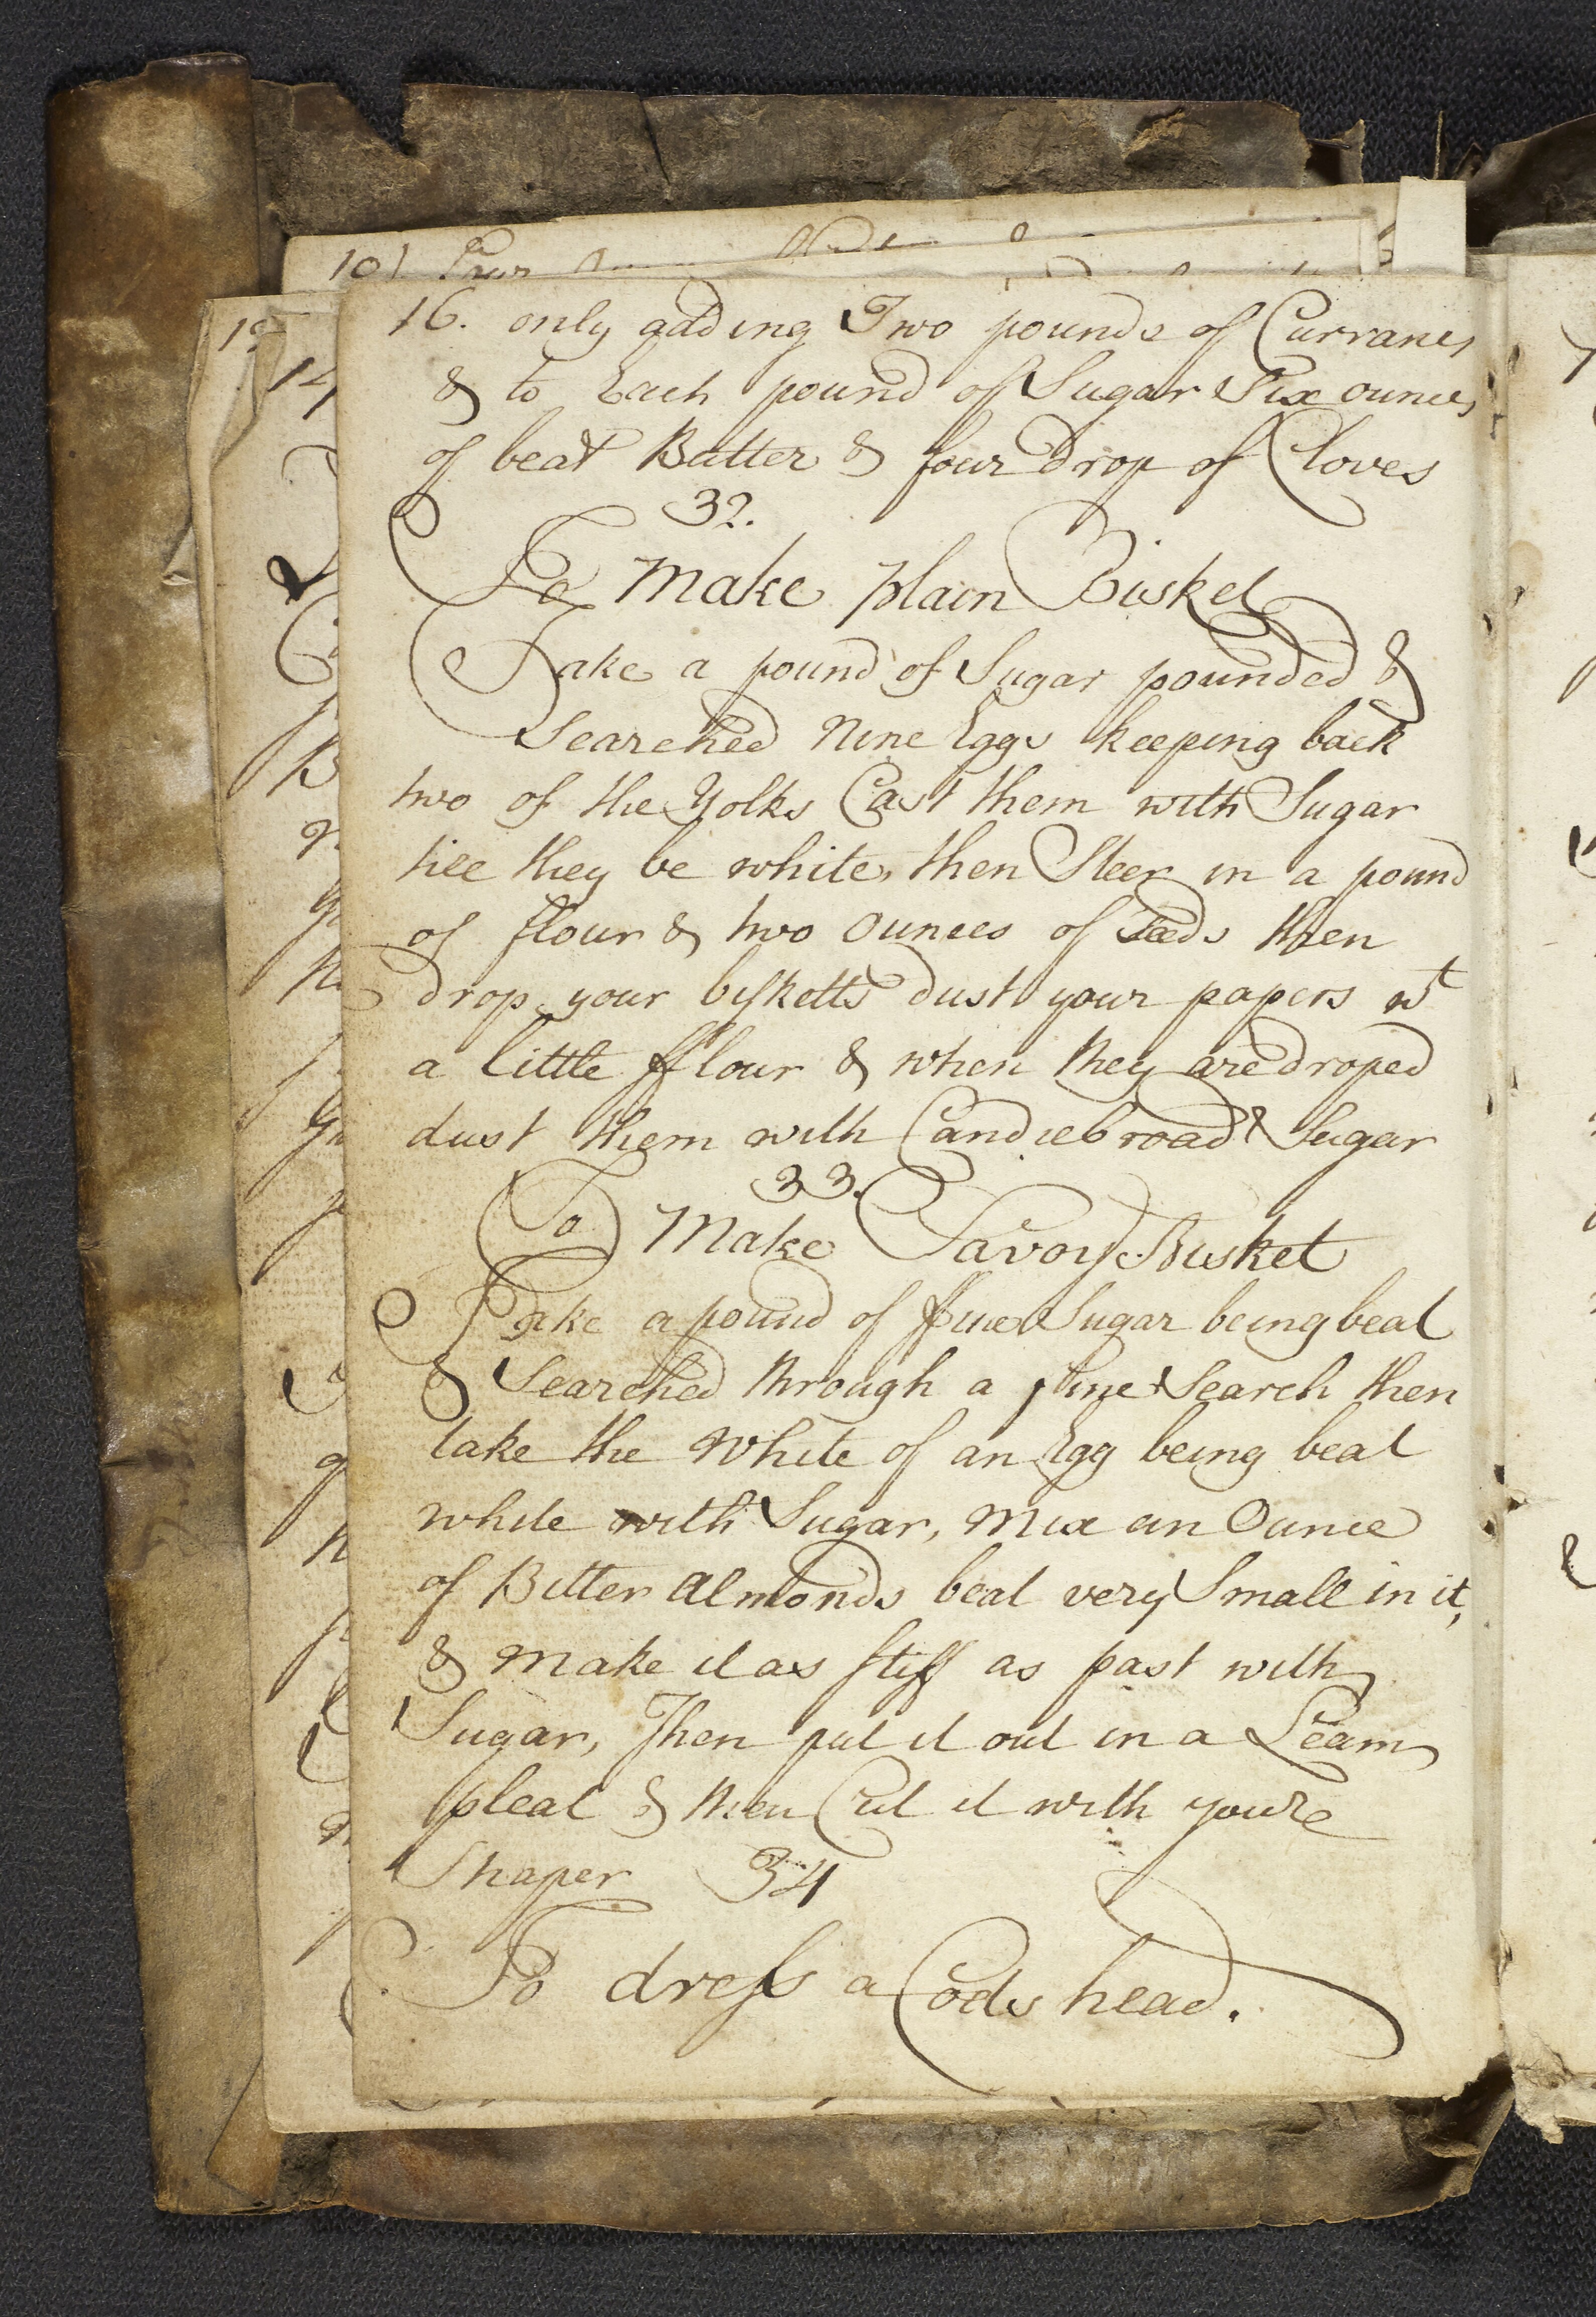 101
16. only adding Two pounds of Currans
& to Each pound of Sugar Six ounces
of beat Butter & four Drop of Cloves
32.
To Make plain Bisket
Take a pound of Sugar pounded &
Searched Nine Eggs keeping back
two of the Yolks Cast them with Sugar
till they be white, then Steer in a pound
of flour & two ounces of Seeds then
drop your bisketts dust your papers wt
a little fflour & when they are droped
dust them with Candiebroad Sugar
33.
To Make Savoy Bisket
Take a pound of ffine Sugar being beat
& Searched through a fine Search then
take the White of an Egg being beat
white with Sugar, Mix an Ounce
of Bitter Almonds beat very Small in it,
& Make it as stiff as past with
Sugar, Then put it out in a Leam
pleat & then Cut it with youre
Shaper 34
To dress a Cods head.